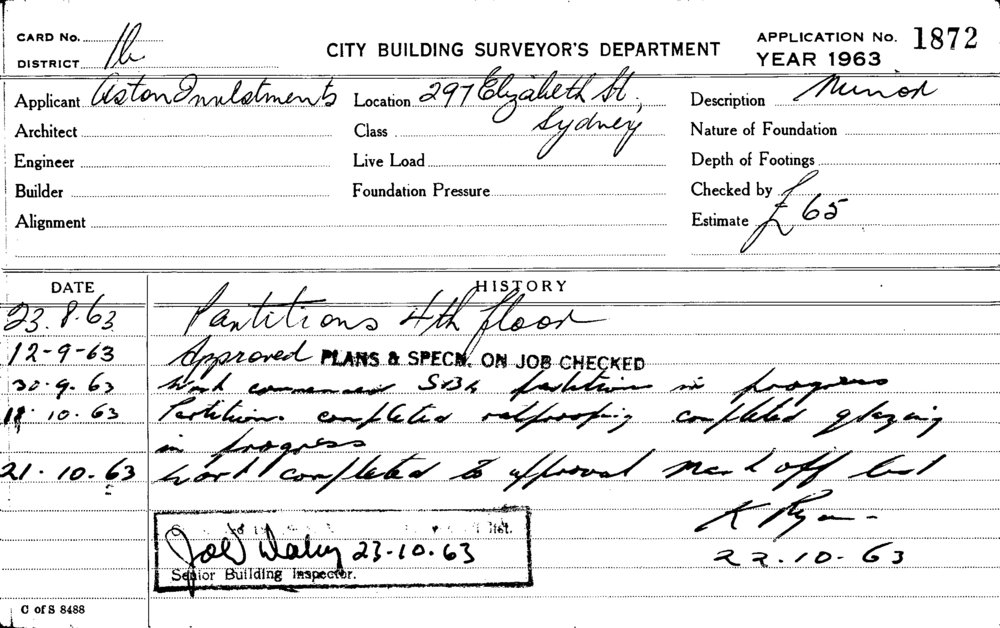 CARD No.
DISTRICT 16
CITY BUILDING SURVEYOR'S DEPARTMENT
APPLICATION No. 1872
YEAR 1963
Applicant Aston Investments
Location 297 Elizabeth St,
Sydney
Description Minor
Architect
Class
Nature of Foundation
Engineer
Live Load
Depth of Footings
Builder
Foundation Pressure
Checked by
Alignment
Estimate £65
DATE HISTORY
23.8.63 Partitions 4th floor
12-9-63 Approved PLANS & SPECN. ON JOB CHECKED
30.9.63 Work commenced partitions in progress
10.63 Partitions completed ratproofing completed glazing
in progress
21.10.63 Work completed to approval Mark off card
K Ryan
22.10.63
list.
23-10-63
Senior Building Inspector.
C of S 8488